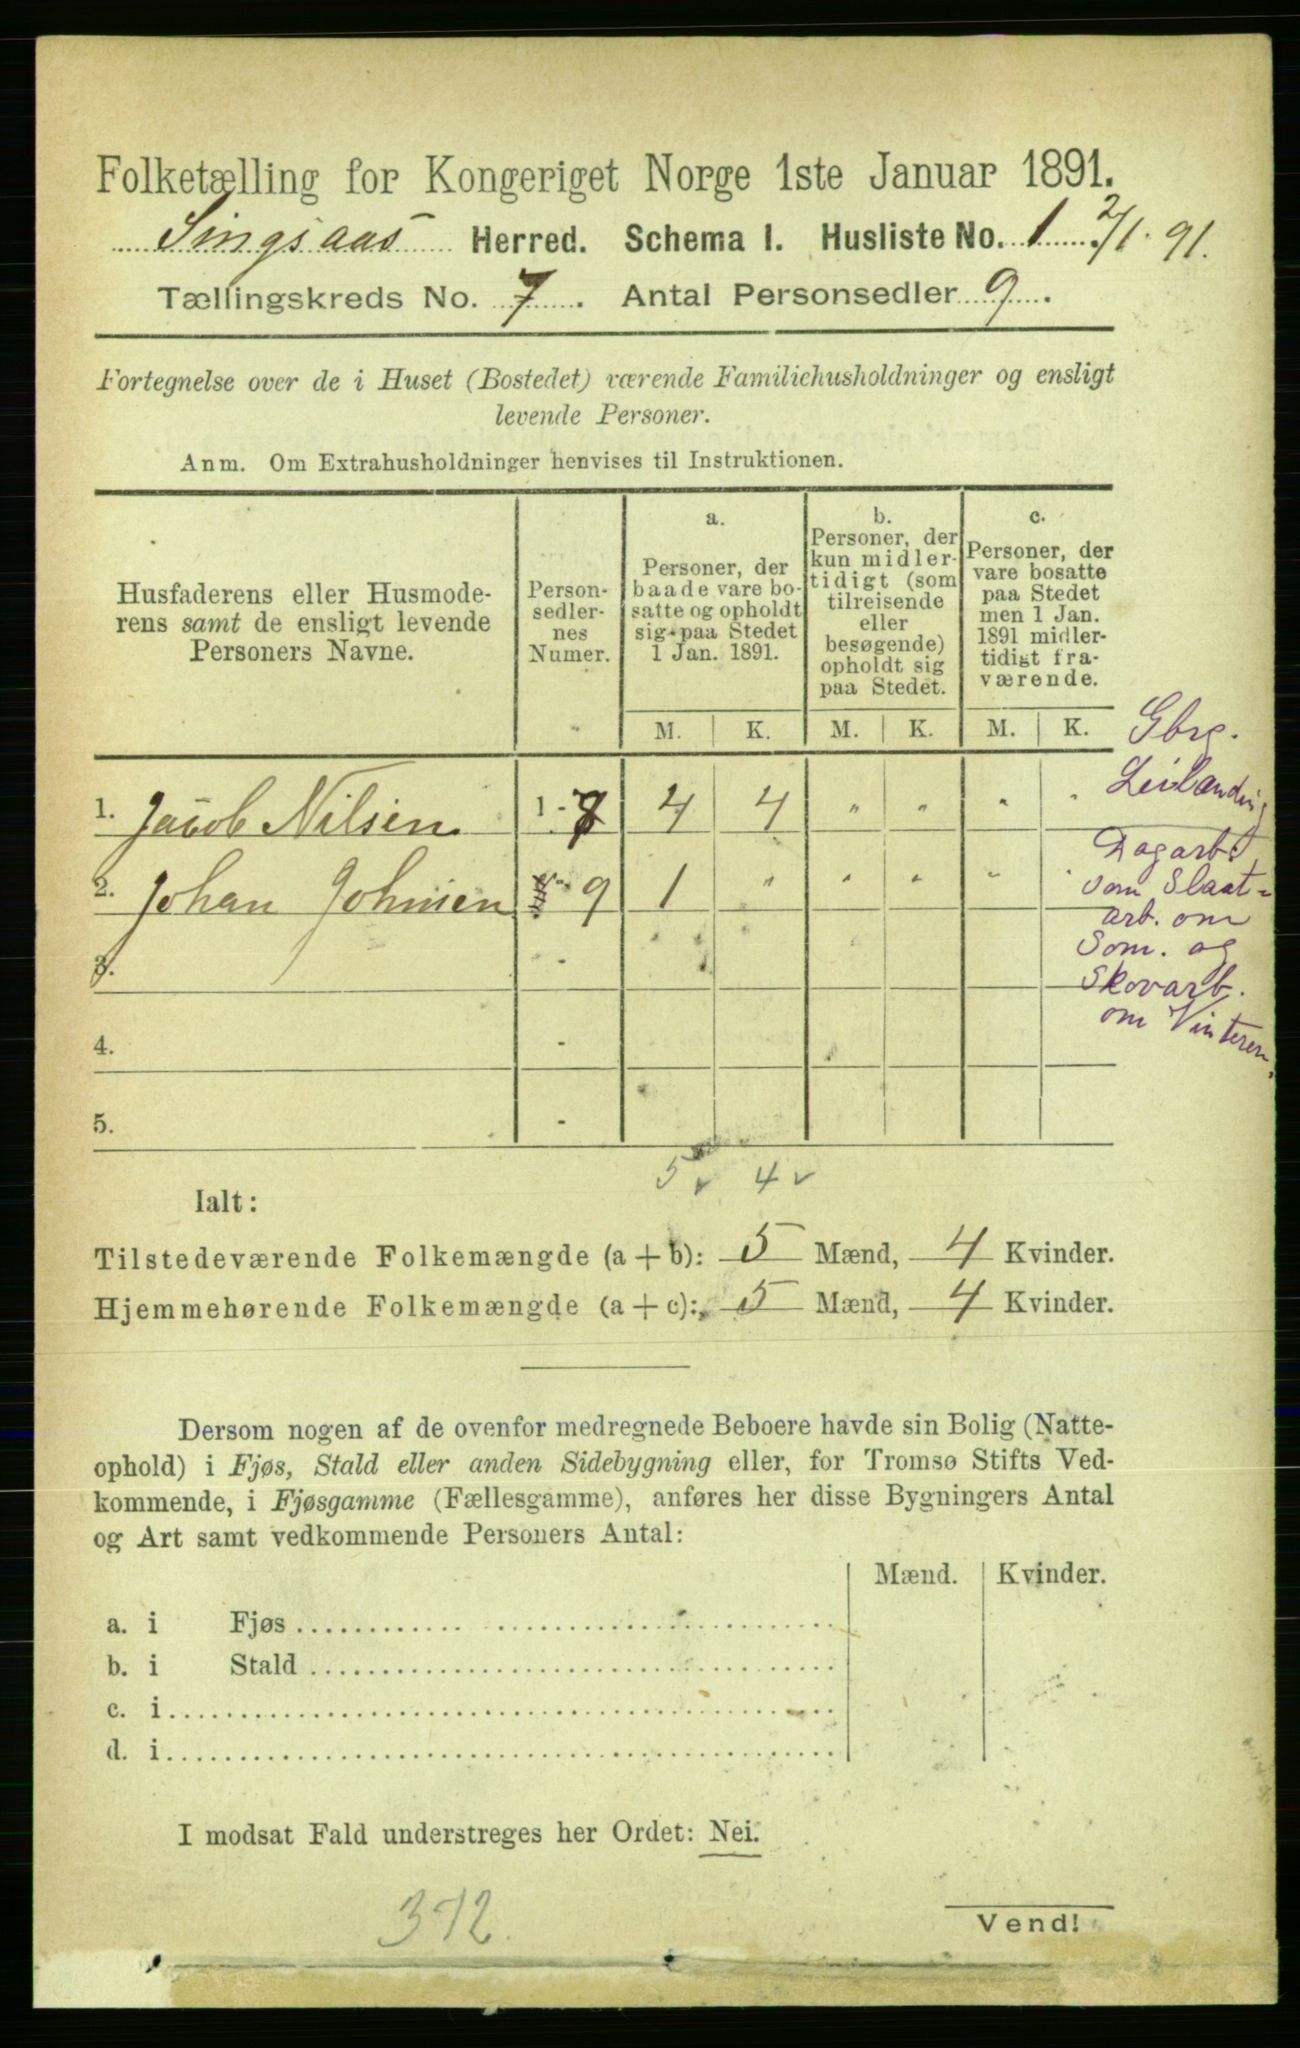 Folketælling for Kongeriget Norge 1ste Januar 1891.
Singsaas Herred. Schema I. Husliste No. 1. 2/1. 91.
Tællingskreds No. 7. Antal Personsedler 9.
Fortegnelse over de i Huset (Bostedet) værende Familiehusholdninger og ensligt
levende Personer.
Anm. Om Extrahusholdninger henvises til Instruktionen.
Husfaderens eller Husmode-
rens samt de ensligt levende
Personers Navne.
Person-
sedler-
nes
Numer.
a.
Personer, der
baade vare bo-
satte og opholdt
sig paa Stedet
1 Jan. 1891.
b.
Personer, der
kun midler-
tidigt (som
tilreisende
eller
besøgende)
opholdt sig
paa Stedet.
c.
Personer, der
vare bosatte
paa Stedet
men 1 Jan.
1891 midler-
tidigt fra-
værende.
M. K. M. K. M. K.
1. Jacob Nilsen 1 - 8 4 4 " " " "
2. Johan Johnsen - 9 1 " " " " "
3. -
4. -
5. -
Gbrg.
Leilænding
Dagarb.
som Slaat-
arb. om
Som. og
Skovarb.
om Vinteren.
5 v 4 v
Ialt:
Tilstedeværende Folkemængde (a + b): 5 Mænd, 4 Kvinder.
Hjemmehørende Folkemængde (a + c): 5 Mænd, 4 Kvinder.
Dersom nogen af de ovenfor medregnede Beboere havde sin Bolig (Natte-
ophold) i Fjøs, Stald eller anden Sidebygning eller, for Tromsø Stifts Ved-
kommende, i Fjøsgamme (Fællesgamme), anføres her disse Bygningers Antal
og Art samt vedkommende Personers Antal:
Mænd. Kvinder.
a. i Fjøs
b. i Stald
c. i
d. i
I modsat Fald understreges her Ordet: Nei.
372.
Vend!